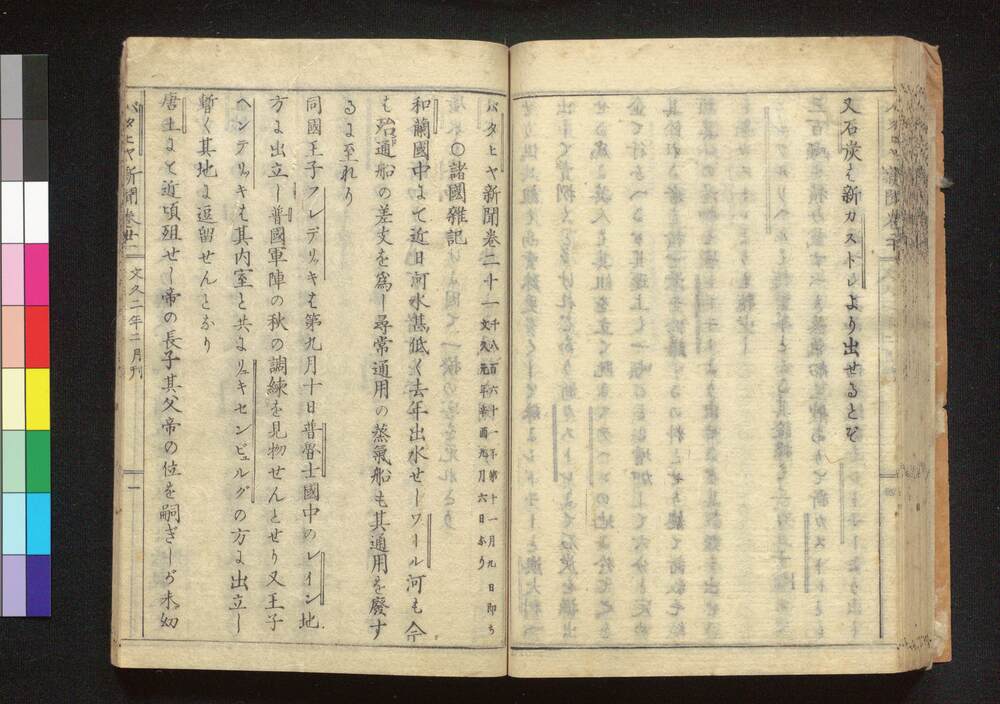 又石炭も新カストレより出せるとぞ
バタヒヤ新聞卷二十一 千八百六十一年第十一月九日即ち文久元年辛酉九月六日なり
○諸國雜記
和蘭國中よて近日河水甚低く去年出水せーワール河も今
も殆通船の差支を爲ー尋常通用の蒸氣船も其通用を廢す
るよ至れり
同國王子フレデリッキも第九月十日普魯士國中のレイン地
方よ出立ー普國軍陣の秋の調練を見物せんとせり又王子
ヘンデリッキも其内室と共よリュキセンビュルグの方よ出立ー
暫く其地よ逗留せんとなり
唐土よて近頃殂せー帝の長子其父帝の位を嗣ぎーが未幼
バタヒヤ新聞卷廿一
文久二年二月刊
一